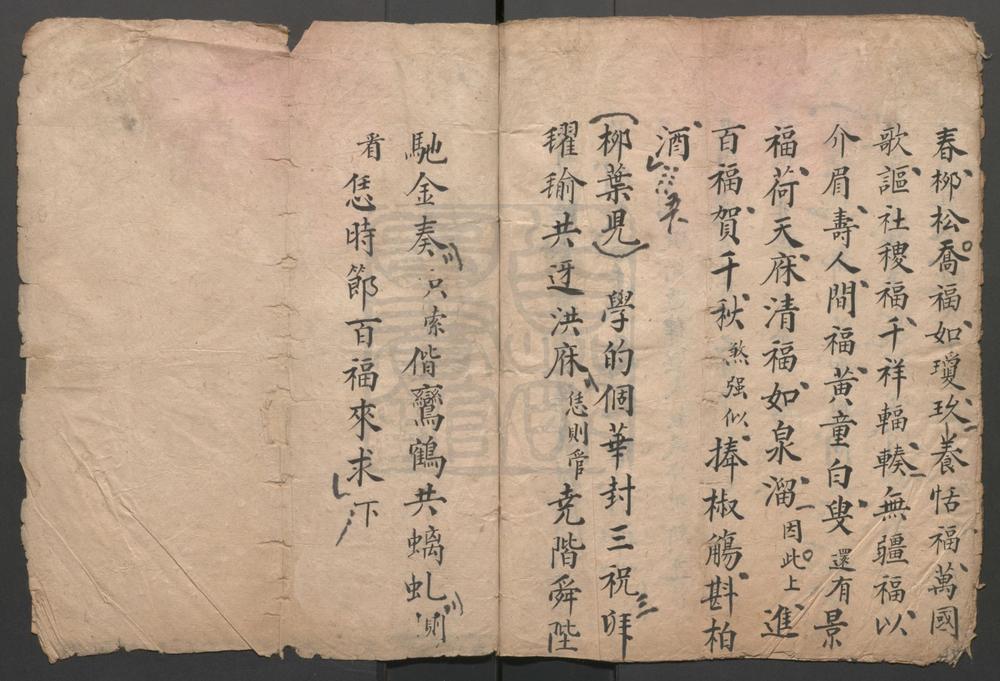 春栁松喬福如瓊玖養恬福萬國
歌謳社稷福千祥輻輳無疆福以
介眉壽人間福黃童白叟還有景
福荷天庥清福如泉溜因此上進
百福賀千秋煞强似捧椒觴斟柏
酒
栁葉児 學的個華封三祝拜
耀瑜共迓洪庥恁則管堯階舜陛
馳金奏只索偕鸞鶴共螭虬則
看恁時節百福來求下